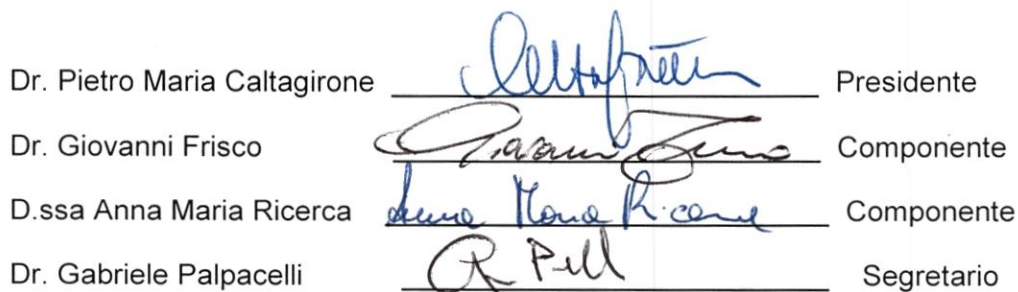 Dr. Pietro Maria Caltagirone Presidente
Dr. Giovanni Frisco Componente
D.ssa Anna Maria Ricerca Anna Maria Ricerca Componente
Dr. Gabriele Palpacelli Segretario